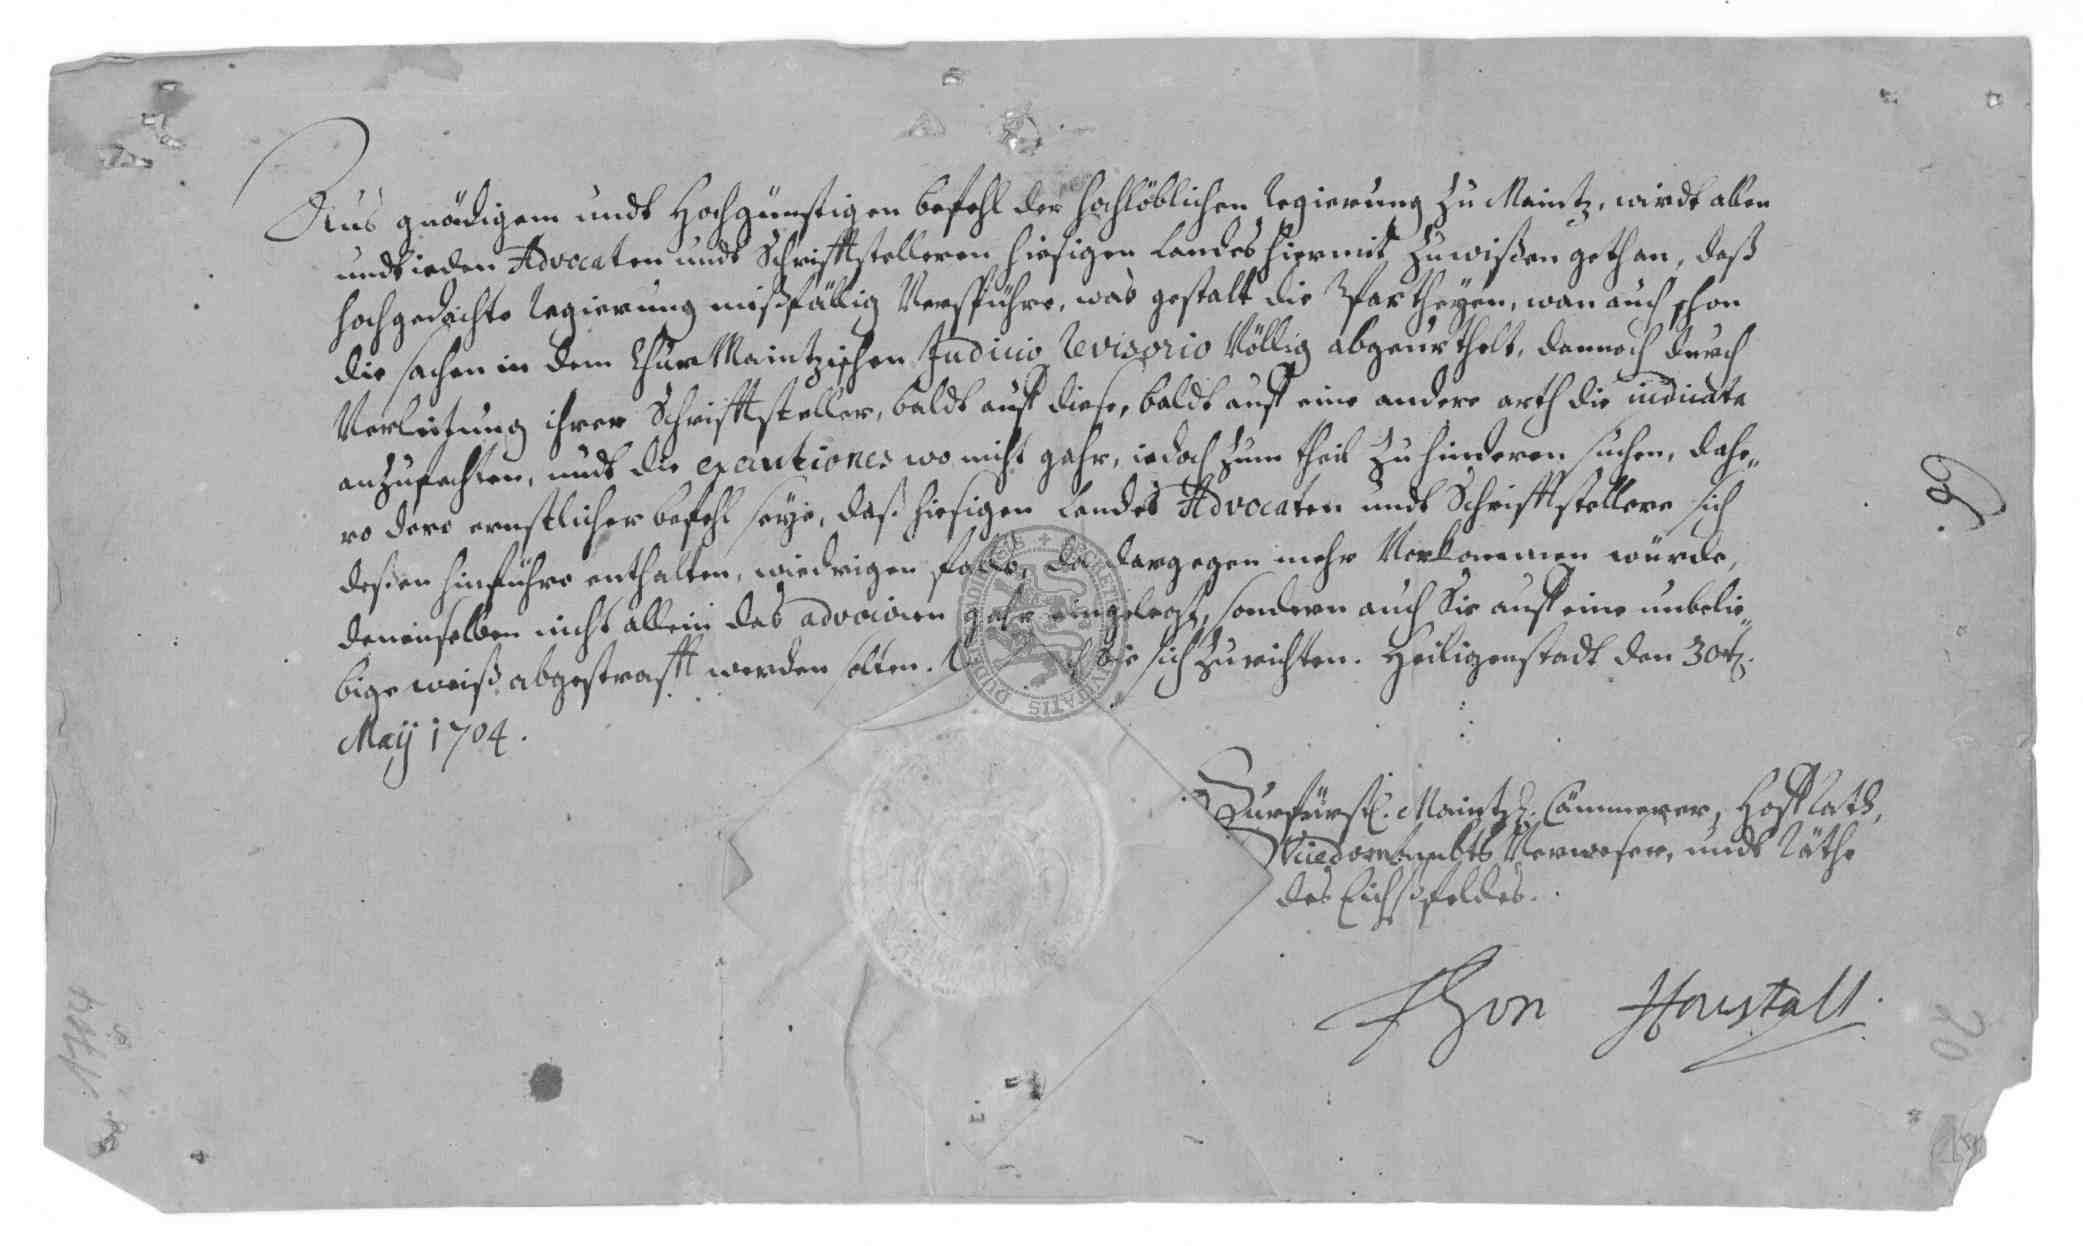 Aus gnädigem undt Hochgünstigen befehl der hochlöblichen Regierung zu Maintz, wirdt allen
undt ieden Advocaten undt Schrifftstelleren hiesigen Landes hiermit zuwißen gethan, daß
hochgedachte Regierung mißfällig Verspühre, was gestalt die Partheyen, wan auch schon
die sachen in dem ChurMaintzischen Judicio Revisorio Völlig abgeurthelt, dennoch durch
Verleitung ihrer Schrifftsteller, baldt auff diese, baldt auff eine andere arth die iudicata
anzufechten, undt die executiones wo nicht gahr, iedoch zum theil zu hinderen suchen, dahe„
ro dero ernstlicher befehl seye, daß hiesigen Landes Advocaten undt Schrifftstellere sich
deßen hinführo enthalten, wiedrigen fals, da dargegen mehr Vorkommen würde,
denenselben nicht allein das advociren gahr eingelegt, sondern auch Sie auff eine unbelie„
bige weiß abgestrafft werden solten. sie sich zurichten. Heiligenstadt den 30t.
Maij 1704.
Churfürstl. Maintz. Cämmerer, HoffRath,
Vicedombambts Verweser, undt Räthe
des Eichßfeldes.
20